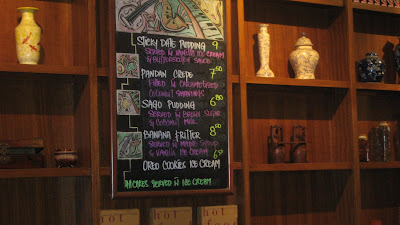 STICKY DATE PUDDING 9
SERVED W VANILLA ICE CREAM
& BUTTERSCOTCH SAUCE
PANDAN CREPE 7.50
FILLED W CARAMELISED
COCONUT SHAVINGS
SAGO PUDDING 6.80
SERVED W BROWN SUGAR
& COCONUT MILK
BANANA FRITTER 8.50
SERVED W MAPLE SYRUP
& VANILLA ICE CREAM 6.50
OREO COOKIES ICE CREAM
CAKES SERVED W ICE CREAM
hot hot hot